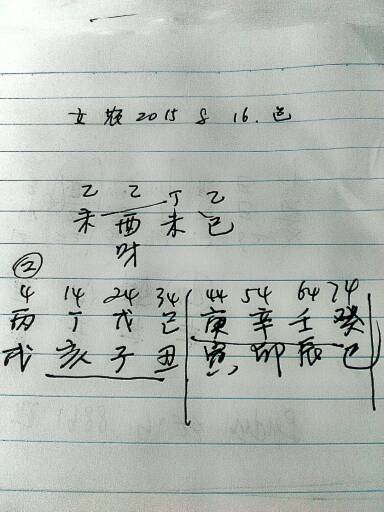 女 2015 8 16. 巳
乙 乙 丁 乙
未 酉 未 巳
时
②
4 14 24 34 44 54 64 74
丙 丁 戊 己 庚 辛 壬 癸
戌 亥 子 丑 寅 卯 辰 巳